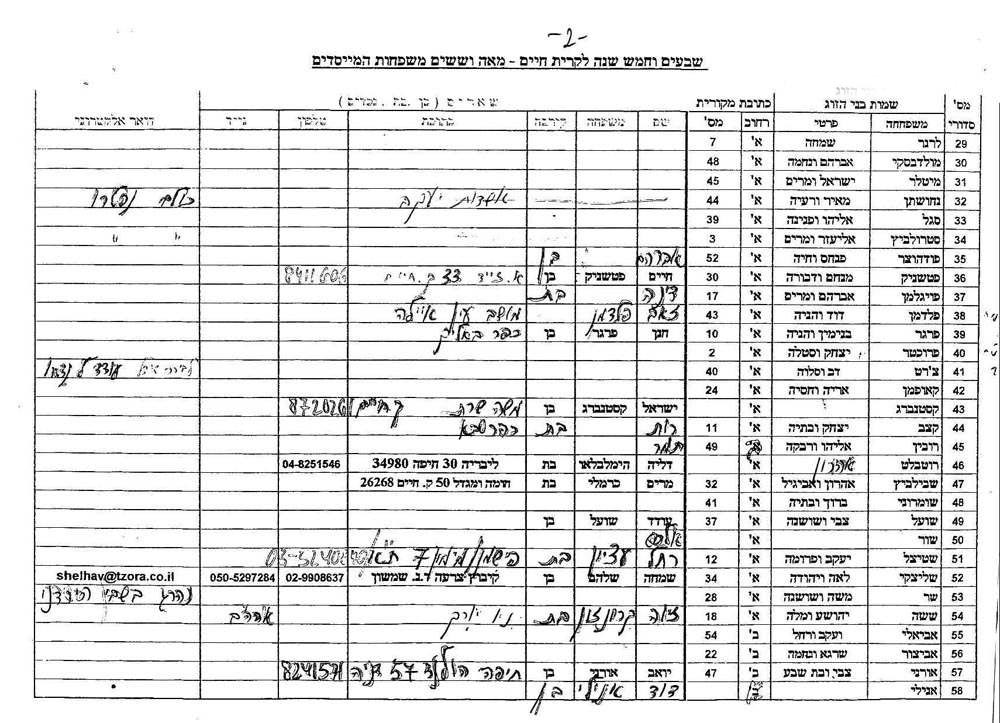 -2-
שבעים וחמש שנה לקרית חיים - מאה וששים משפחות המייסדים
מס' סדורי שמות בני הזוג כתובת מקורית
משפחה פרטי רחוב מס' שם משפחה קירבה כתובת טלפון נייד דואר אלקטרוני
29 לרנר שמחה א' 7
30 מולדבסקי אברהם ונחמה א' 48
31 מיטלר ישראל ומרים א' 45
32 נחושתן מאיר ורעיה א' 44 אשדות יעקב כולם נפטרו
33 סגל אליהו ופנינה א' 39
34 סטרולביץ אליעזר ומרים א' 3 " "
35 פודהוצר פנחס וחיה א' 52 אברהם בן
36 פטשניק מנחם ודבורה א' 30 חיים פטשניק בן 33 ק. חיים 8411606
37 פייגלמן אברהם ומרים א' 17 דינה בת
38 פלדמן דוד והניה א' 43 זאב פלדמן מושב עין איילה
39 פרגר בנימין והניה א' 10 חנן פרגר בן כפר ביאליק
40 פרוכטר יצחק וסטלה א' 2
41 צ'רט דב וסלוה א' 40
42 קאופמן אריה וחסיה א' 24
43 קסטנברג א' ישראל קסטנברג בן משה שרת ק. חיים 8720261
44 קצב יצחק ובתיה א' 11 רות בת כפר סבא
45 רובין אליהו ורבקה א' 49 תמר
46 רוטבלט אהרון א' דליה הימלבלאו בת ליבריה 30 חיפה 34980 04-8251546
47 שבילביץ אהרון ואביגיל א' 32 מרים כרמלי בת חומה ומגדל 50 ק. חיים 26268
48 שומרוני ברוך ובתיה א' 41
49 שועל צבי ושושנה א' 37 עודד שועל בן
50 שור א'
51 שטיצל יעקב ופרומה א' 12 רחל עציון בת
52 שליצקי לאה ויהודה א' 34 שמחה שלהב בן קיבוץ צרעה ד.נ. שמשון 02-9908637 050-5297284 shelhav@tzora.co.il
53 שר משה ושושנה א' 28
54 ששה יהושע ומלה א' 18 בת ניו יורק ארה"ב
55 אביאלי יעקב ורחל ב' 54
56 אביצור שרגא ונחמה ב' 22
57 אורני צבי ובת שבע ב' 47 יואב אורני בן חיפה הולנד 57 דניה 8241571
58 אנילי דוד בן